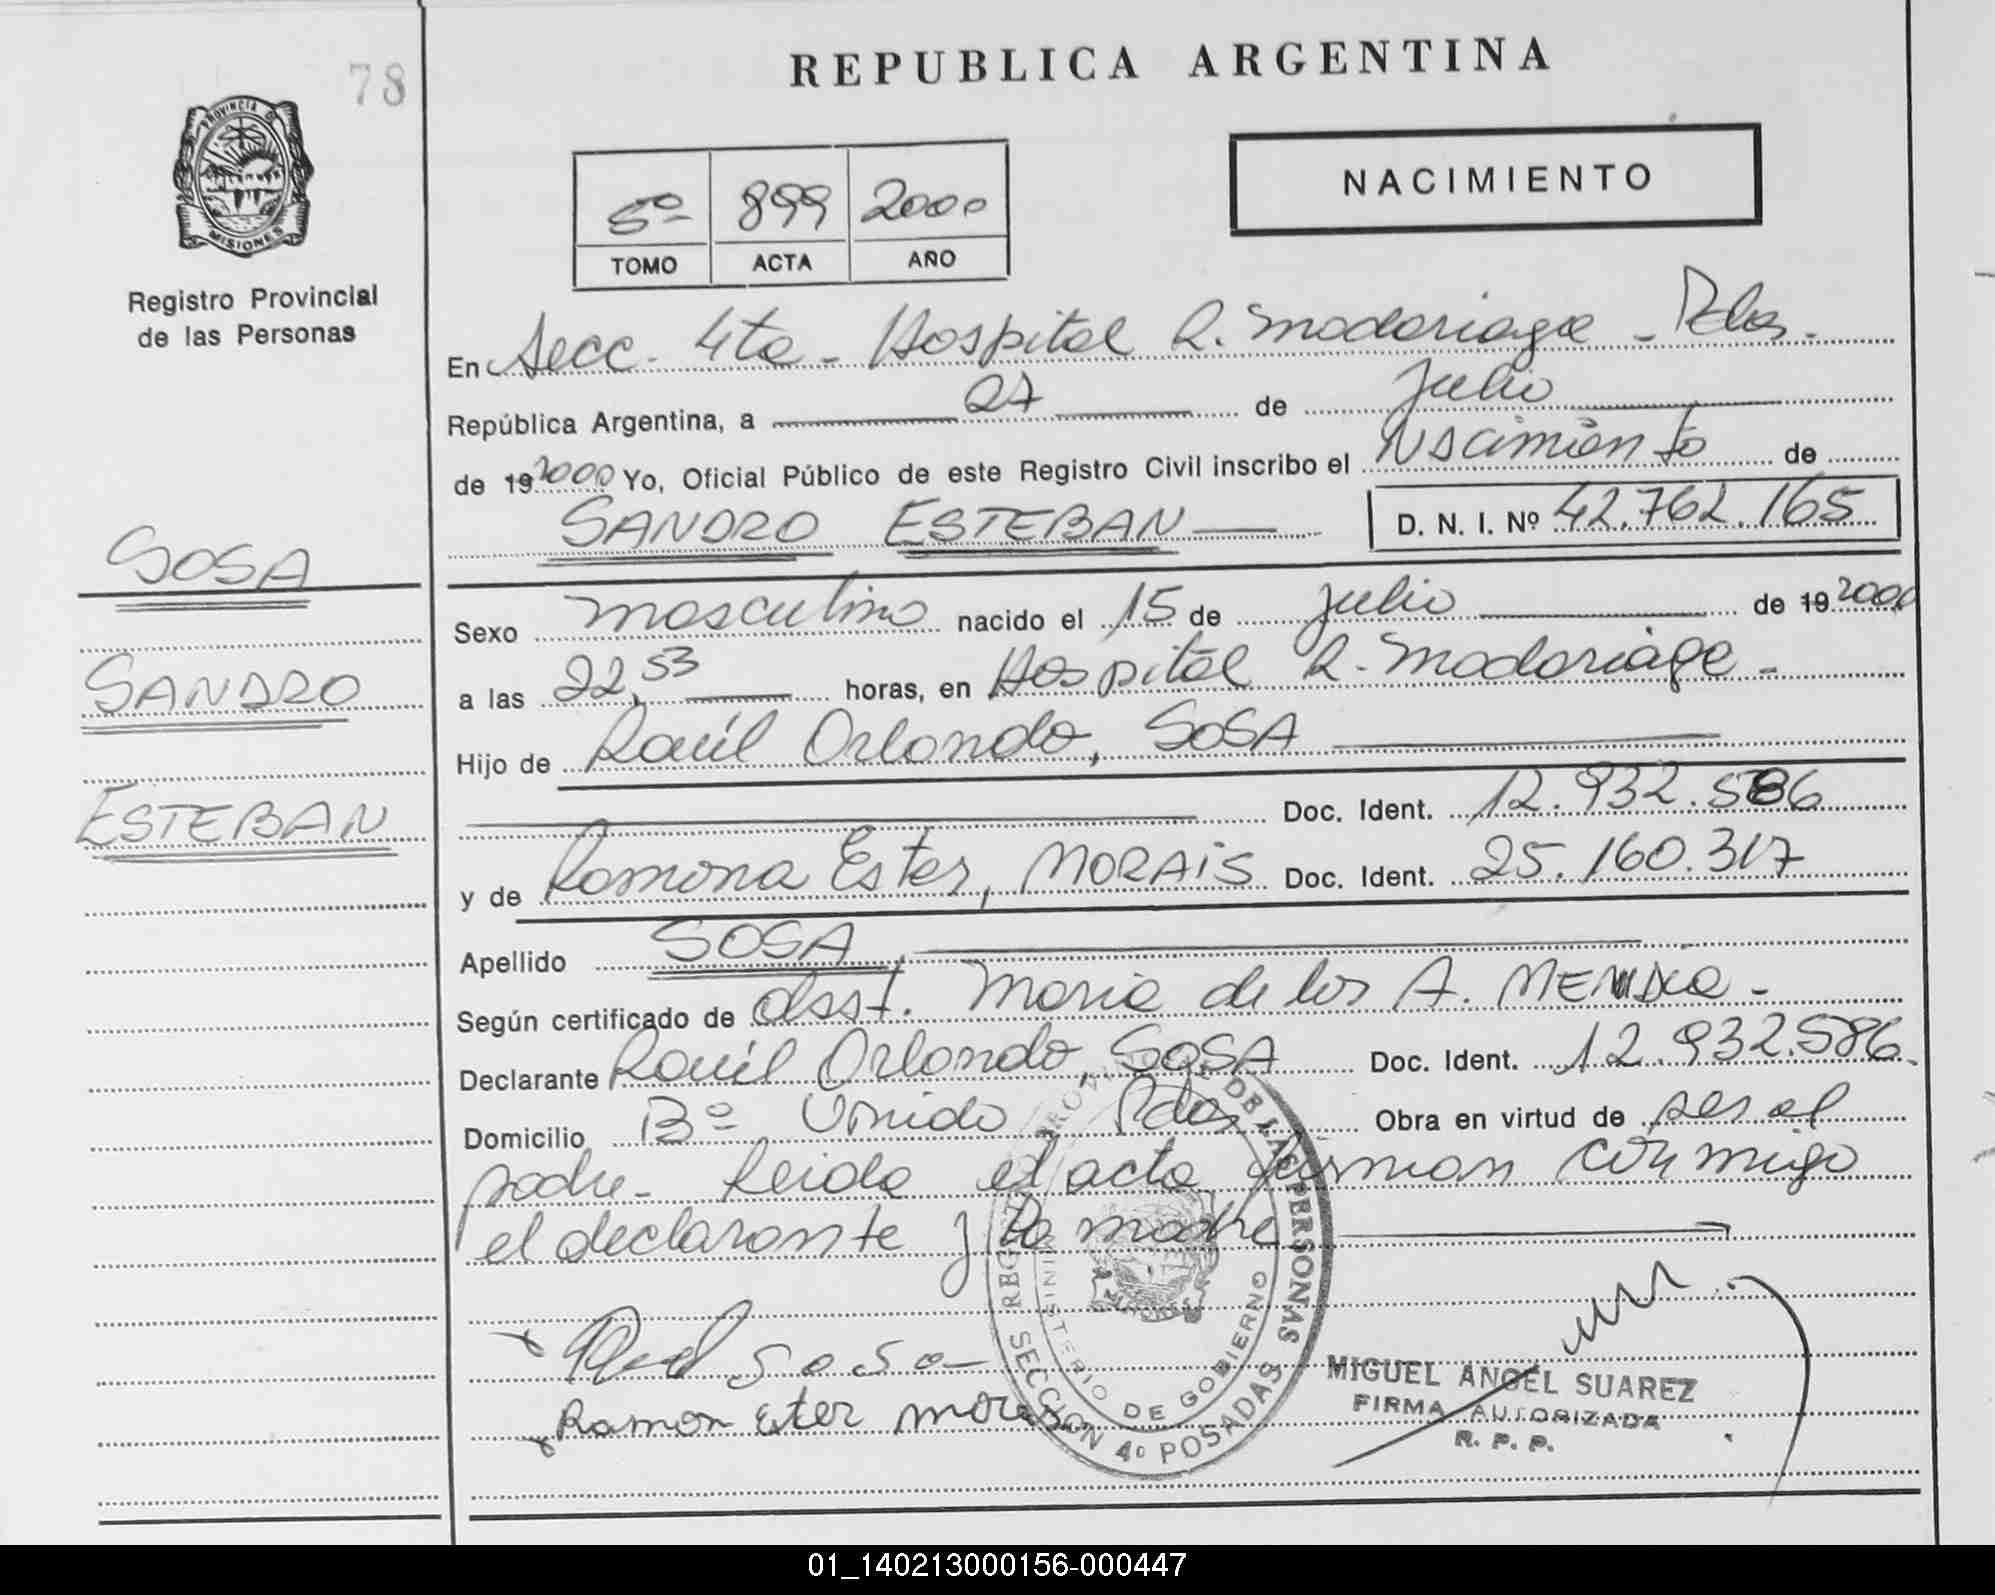 78
REPUBLICA ARGENTINA
PROVINCIA DE
MISIONES
Registro Provincial
de las Personas
NACIMIENTO
5º 899 2000
TOMO ACTA AÑO
En Secc. 4ta - Hospital R. Madariaga - Pdas.
República Argentina, a 27 de Julio
de 19 2000 Yo, Oficial Público de este Registro Civil inscribo el Nacimiento de
SANDRO ESTEBAN D. N. I. Nº 42.762.165
SOSA
SANDRO
ESTEBAN
Sexo masculino nacido el 15 de julio de 19 2000
a las 22,53 horas, en Hospital R. Madariaga -
Hijo de Raúl Orlando, SOSA
Doc. Ident. 12.932.586
y de Ramona Ester, MORAIS Doc. Ident. 25.160.317
Apellido SOSA
Según certificado de Obst. Maria de los A.
Declarante Raúl Orlando, SOSA Doc. Ident. 12.932.586
Domicilio Bº Unido Pdas Obra en virtud de ser el
padre - Leida el acta firman conmigo
el declarante y la madre
Sosa
Ramon Ester
REGISTRO PROVINCIAL DE LAS PERSONAS
MINISTERIO DE GOBIERNO
SECCION 4º POSADAS
MIGUEL ANGEL SUAREZ
FIRMA AUTORIZADA
R. P. P.
01_140213000156-000447